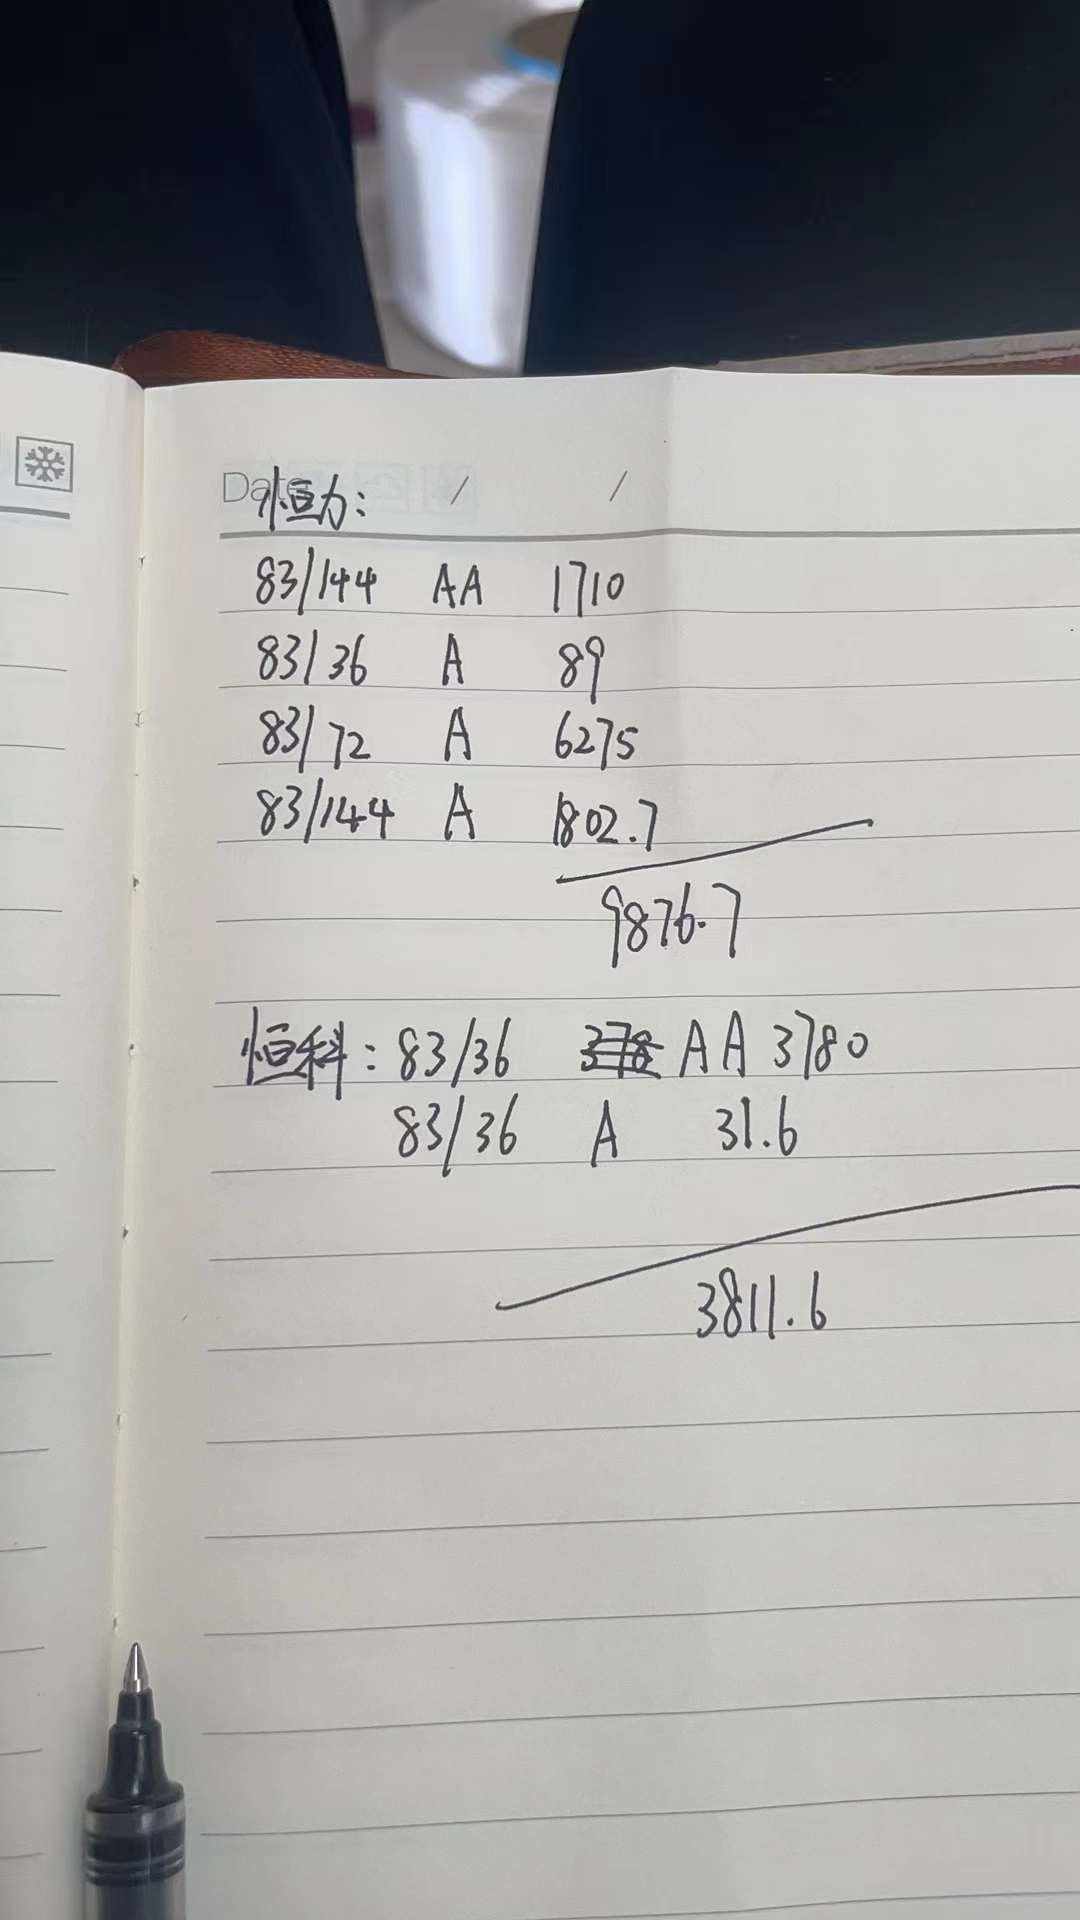 Date / /
恒力:
83/144 AA 1710
83/36 A 89
83/72 A 6275
83/144 A 1802.7
9876.7
恒科: 83/36 378 AA 3780
83/36 A 31.6
3811.6